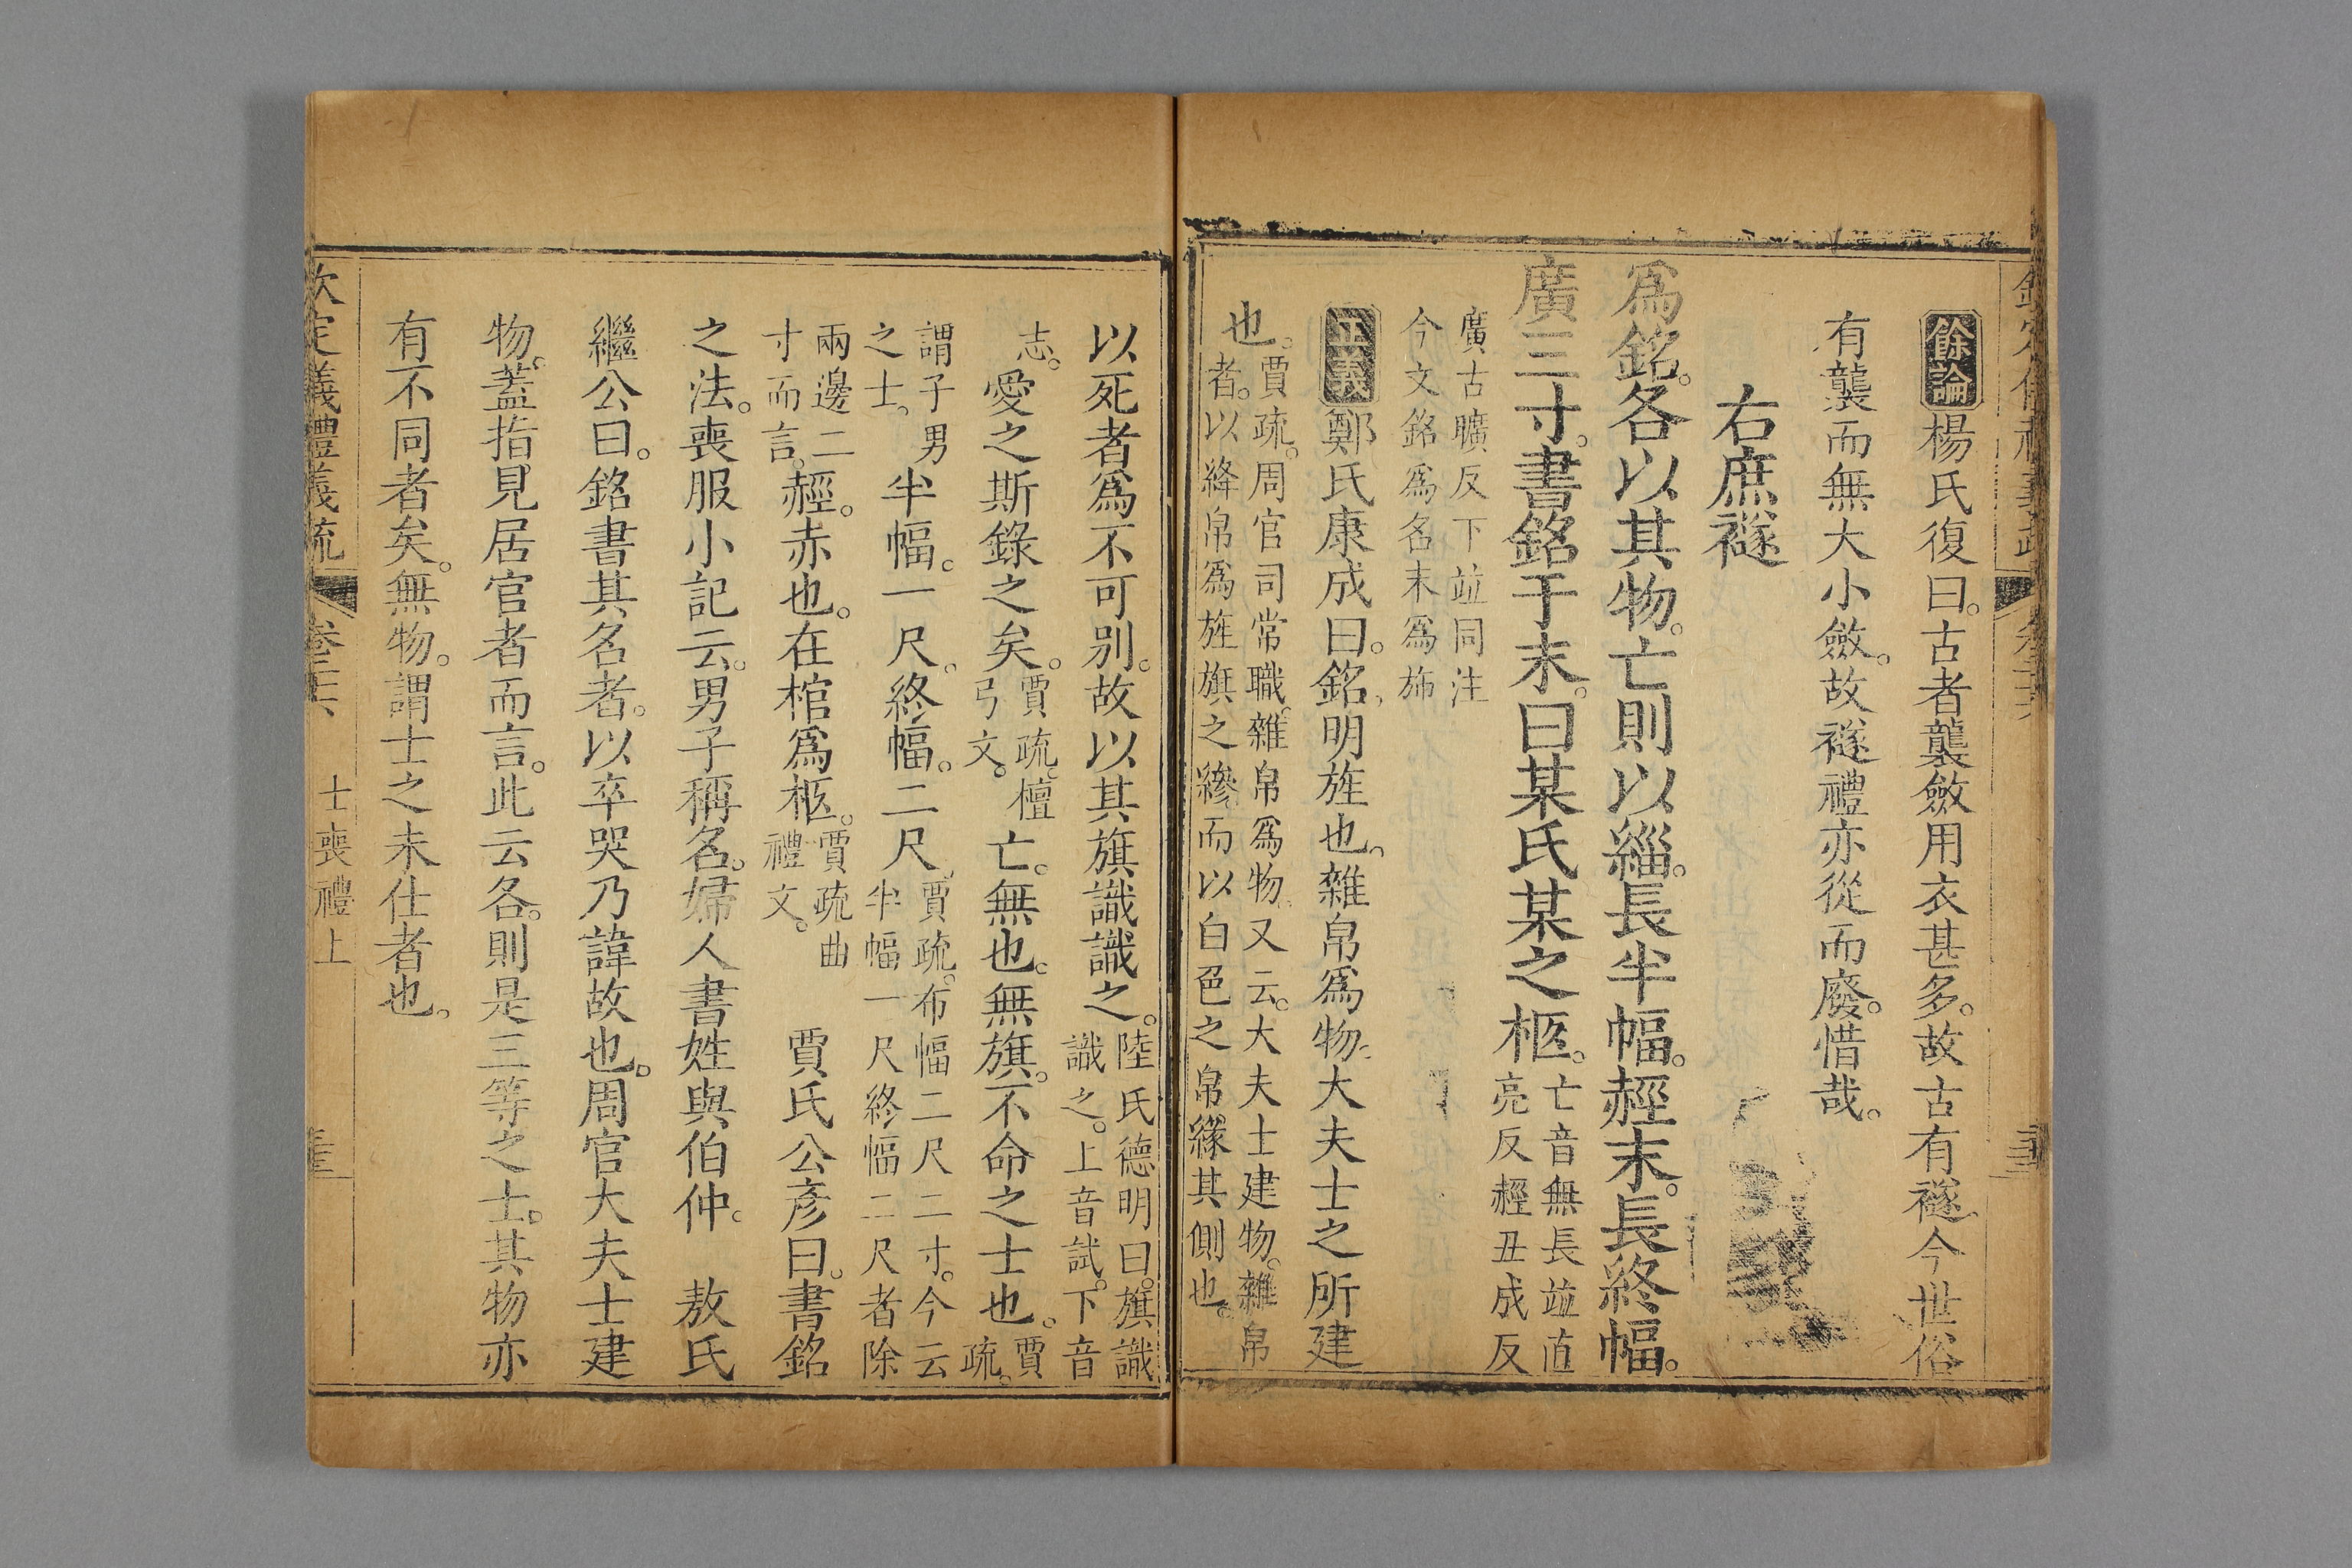 餘論楊氏復曰。古者襲斂用衣甚多。故古有襚。今世俗
有襲而無大小斂。故襚禮亦從而廢。惜哉。
右庶襚
爲銘。各以其物。亡則以緇。長半幅。䞓末。長終幅。
廣三寸。書銘于末。曰某氏某之柩。亡音無長竝直
亮反䞓丑成反
廣古曠反下竝同注
今文銘爲名末爲旆
正義鄭氏康成曰。銘。明旌也。雜帛爲物。大夫士之所建
也。賈疏。周官司常職。雜帛爲物。又云。大夫士建物。雜帛
者。以絳帛爲旌旗之縿。而以白色之帛緣其側也。
以死者爲不可别。故以其旗識識之。陸氏德明曰。旗識
識之。上音試。下音
志。愛之斯錄之矣。賈疏。檀
弓文。亡。無也。無旗。不命之士也。賈
疏。
謂子男
之士。半幅。一尺。終幅。二尺。賈疏。布幅二尺二寸。今云
半幅一尺終幅二尺者除
兩邊二
寸而言。䞓。赤也。在棺爲柩。賈疏曲
禮文。賈氏公彥曰。書銘
之法。喪服小記云。男子稱名。婦人書姓與伯仲。 敖氏
繼公曰。銘書其名者。以卒哭乃諱故也。周官大夫士建
物。蓋指見居官者而言。此云各。則是三等之士。其物亦
有不同者矣。無物。謂士之未仕者也。
欽定義禮義疏 卷二十六 士喪禮上